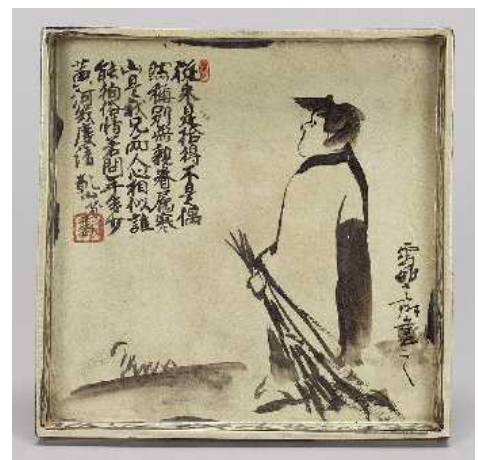 從來是拾得不是偶
然稱別無親眷屬寒
山是我兄兩人心相似誰
能徇俗情若問年多少
黃河幾度清 乾山